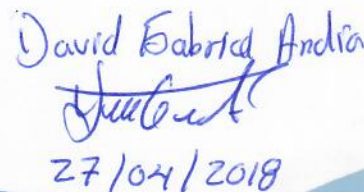 David Gabriel Andia
27/04/2018